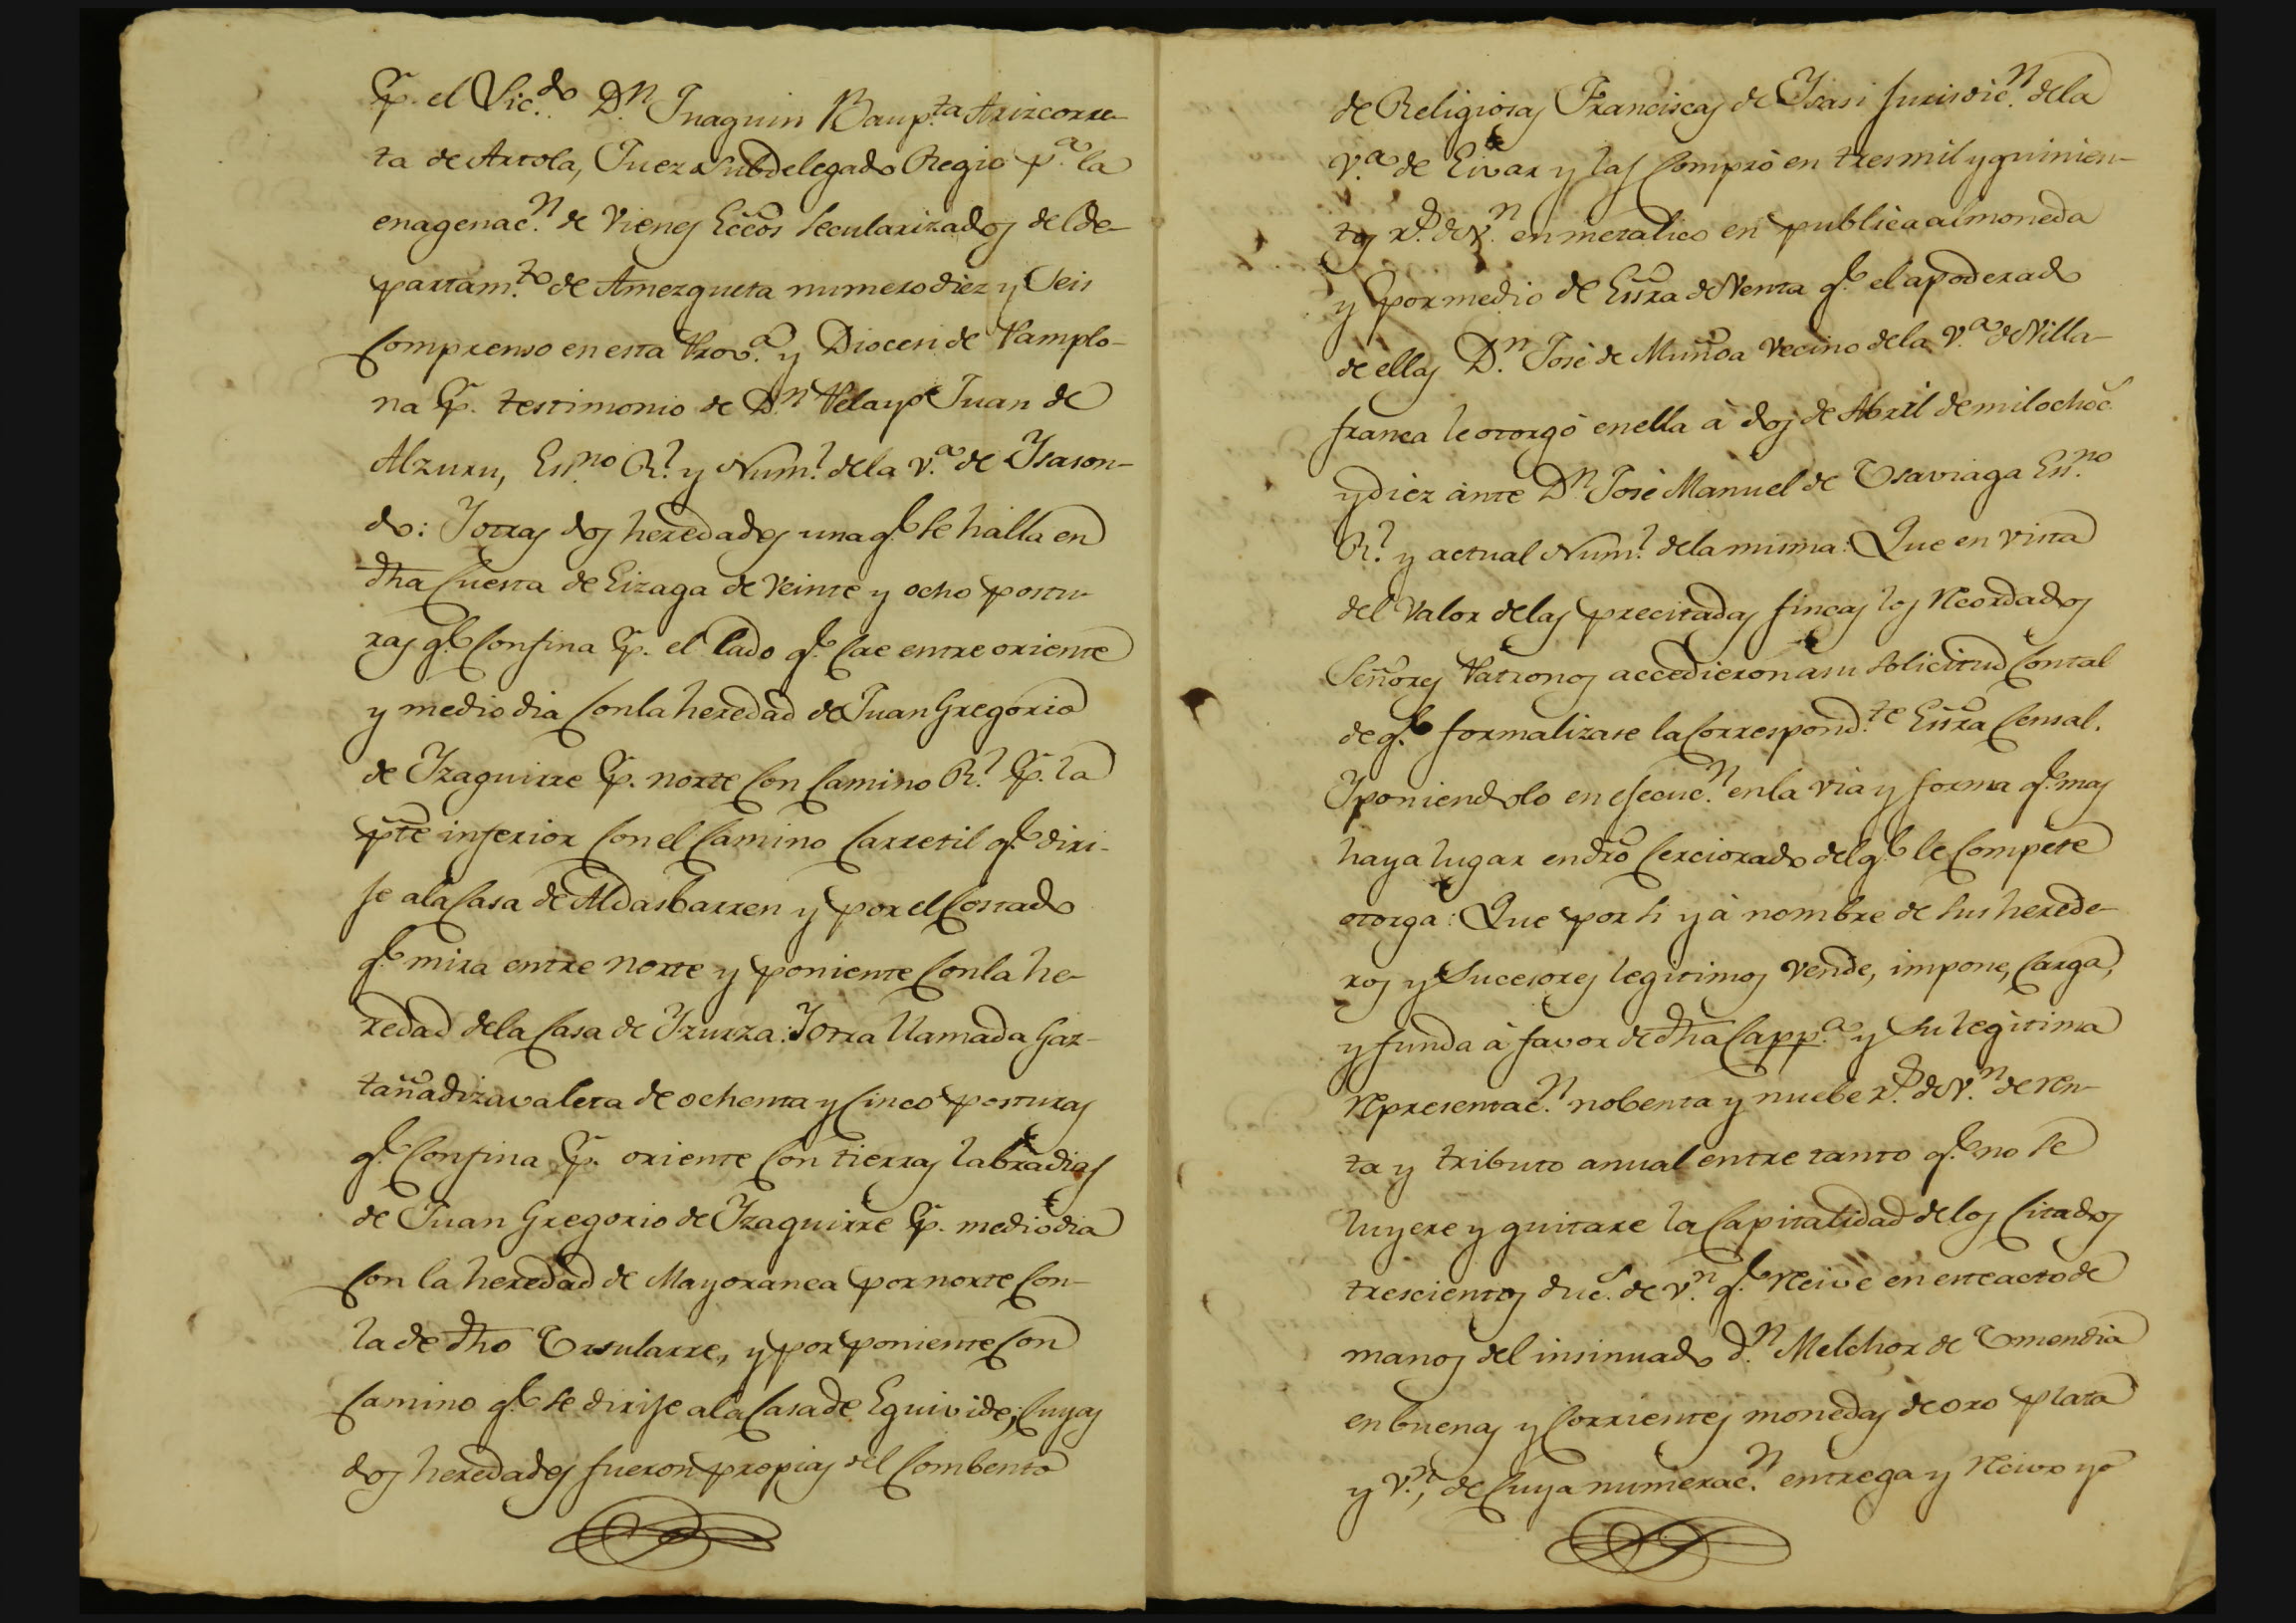 p.r el Lic.do D.n Juaquin Baup.ta Arizcorre-
ta de Artola, Juez Subdelegado Regio p.a la
enagenac.n de vienes Eccos secularizados del de-
partam.to de Amezqueta numero diez y seis
comprenso en esta Prov.a y Diocesi de Pamplo-
na p.r testimonio de D.n Pelayo Juan de
Alzuru, Ess.no R.l y Num.l de la v.a de Ysason-
do: Y otras dos heredades una q.e se halla en
dha Cuesta de Eizaga de veinte y ocho postu-
ras q.e confina p.r el lado q.e cae entre oriente
y medio dia con la heredad de Juan Gregorio
de Yzaguirre p.r norte con camino R.l p.r la
pte inferior con el camino carretil q.e diri-
je a la Casa de Aldasbarren y por el costado
q.e mira entre norte y poniente con la he-
redad de la Casa de Yzurza: Y otra llamada Gaz-
tañadizavaleta de ochenta y cinco posturas
q.e confina p.r oriente con tierras labradias
de Juan Gregorio de Yzaguirre p.r mediodia
con la heredad de Mayoranea por norte con
la de dho Ursularre, y por poniente con
camino q.e se dirije a la Casa de Eguivide; cuyas
dos heredades fueron propias del Combento
de Religiosas Franciscas de Ysasi Jurisdic.n de la
v.a de Eivar y las compró en tres mil y quinien-
tos r.s de v.n en metalico en publica almoneda
y por medio de Essra de Venta q.e el apoderado
de ellas D.n José de Muñoa vecino de la v.a de Villa-
franca le otorgó en ella à dos de Abril de mil ochoc.s
y diez ante D.n José Manuel de Usaviaga Ess.no
R.l y actual Num.l de la misma: Que en vista
del valor de las precitadas fincas los recordados
Señores Patronos accedieron a su solicitud con tal
de q.e formalizase la correspond.te Essra Censal.
Y poniendolo en ejecuc.n en la via y forma q.e mas
haya lugar en dro cerciorado del q.e le compete
otorga: Que por si y à nombre de sus herede-
ros y sucesores legitimos vende, impone, carga,
y funda à favor de dha Capp.a y su legitima
representac.n nobenta y nuebe r.s de v.n de ren-
ta y tributo anual entre tanto q.e no se
luyere y quitare la capitalidad de los citados
trescientos duc.s de v.n q.e recive en este acto de
manos del insinuado d.n Melchor de Umendia
en buenas y corrientes monedas de oro plata
y v.n, de cuya numerac.n entrega y recivo yo